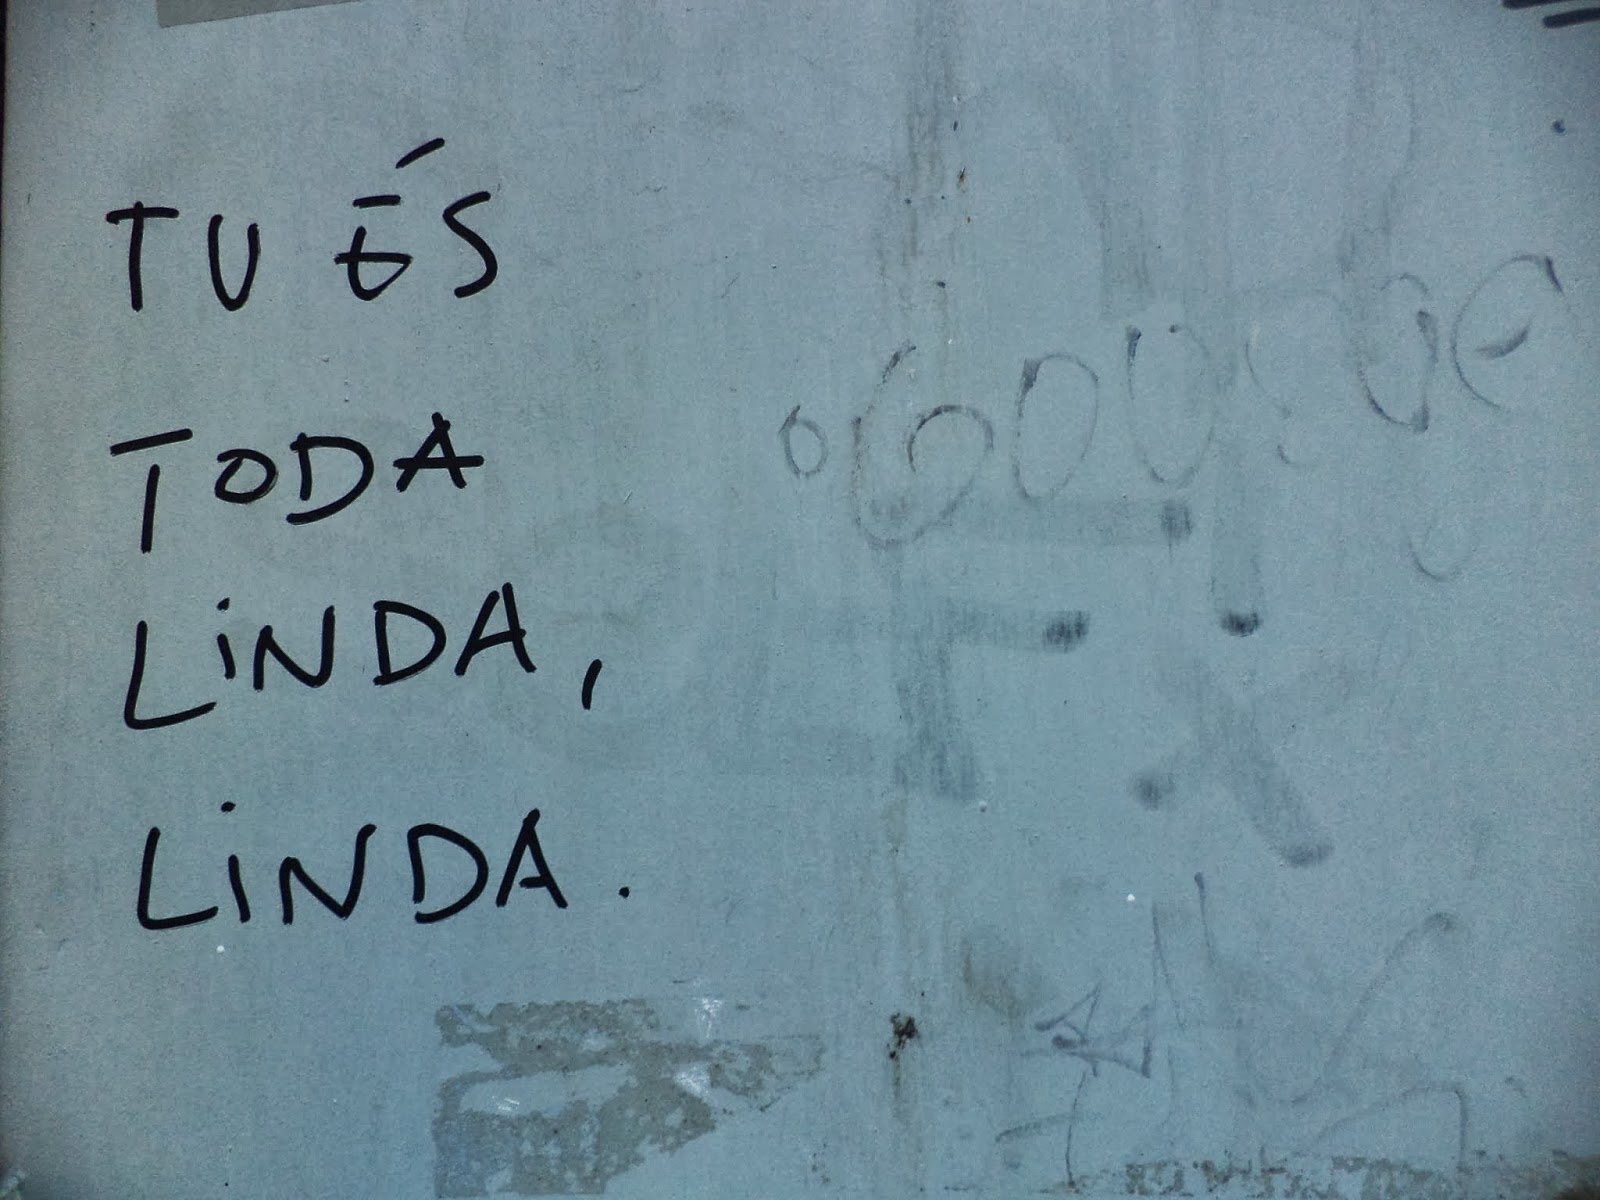 TU ÉS
TODA
LINDA,
LINDA.